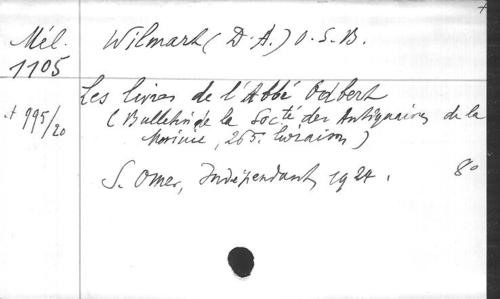 +
Mél. Wilmart (D. A.) O. S. B.
1105
Les livres de l'Abbé Odbert
+ 995/20 (Bulletin de la Socté des Antiquaires de la
Morinie, 265e livraison)
S. Omer, Indépendant, 1924. 8°